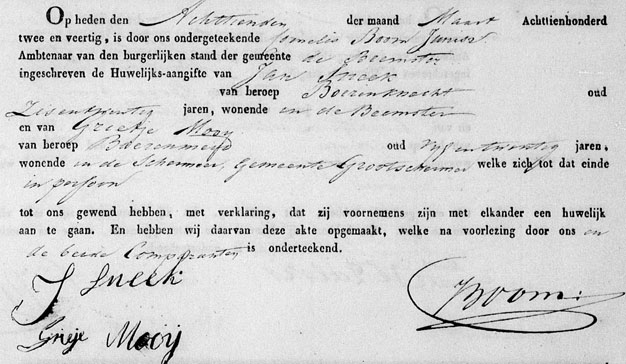 Op heden den Achttienden der maand Maart Achttienhonderd
twee en veertig, is door ons ondergeteekende Cornelis Boom Junior
Ambtenaar van den burgerlijken stand der gemeente de Beemster
ingeschreven de Huwelijks-aangifte van Jan Sneek
van beroep Boerenknecht oud
Zesentwintig jaren, wonende in de Beemster
en van Grietje Mooij
van beroep Boerenmeid oud Vijfentwintig jaren,
wonende in de Schermeer, Gemeente Grootschermer welke zich tot dat einde
in persoon
tot ons gewend hebben, met verklaring, dat zij voornemens zijn met elkander een huwelijk
aan te gaan. En hebben wij daarvan deze akte opgemaakt, welke na voorlezing door ons en
de beide Comparanten is onderteekend.
J Sneek
Boom
Grieje Mooij